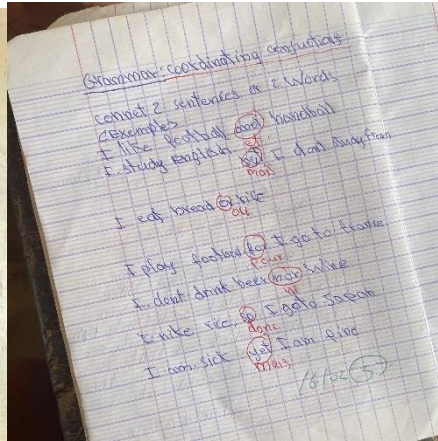 Grammar: coordinating conjuctions.
connet 2 sentences or 2 Words
<Exemple>
I like football and handball
et
I study English. but I dont study
mais
I eat bread or rice
ou
I play football for I go to france.
pour
I. dont drink beer nor wine
ni
I rice, so I goto Japan
donc
I am sick yet I am fine
mais